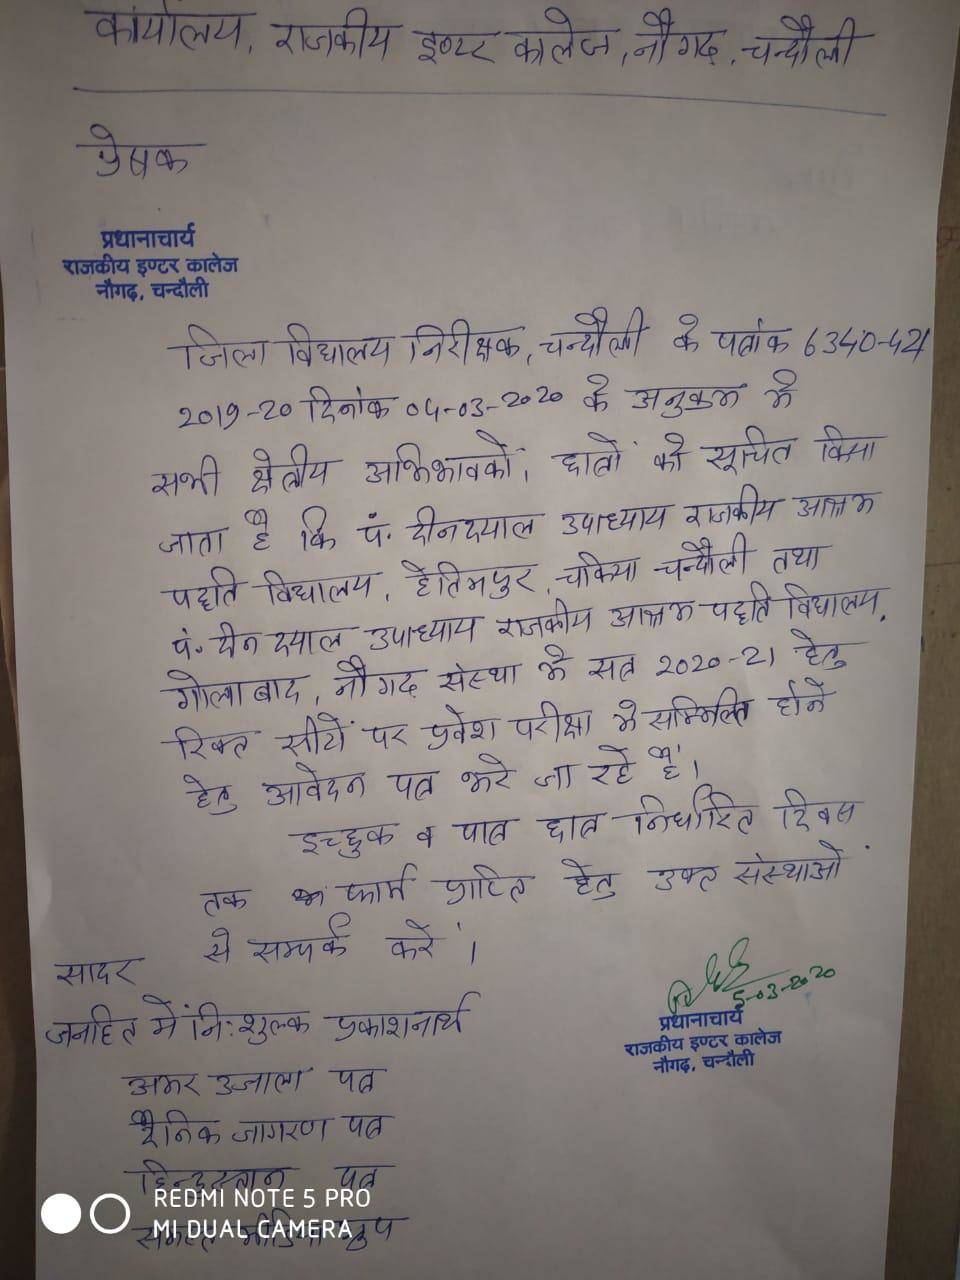 कार्यालय, राजकीय इण्टर कालेज, नौगढ़, चन्दौली
प्रेषक
प्रधानाचार्य
राजकीय इण्टर कालेज
नौगढ़, चन्दौली
जिला विद्यालय निरीक्षक, चन्दौली के पत्रांक 6340-42/
2019-20 दिनांक 04-03-2020 के अनुक्रम में
सभी क्षेत्रीय अभिभावकों, छात्रों को सूचित किया
जाता है कि पं. दीनदयाल उपाध्याय राजकीय आश्रम
पद्धति विद्यालय, हेतिमपुर, चकिया चन्दौली तथा
पं. दीन दयाल उपाध्याय राजकीय आश्रम पद्धति विद्यालय,
गोलाबाद, नौगढ़ संस्था में सत्र 2020-21 हेतु
रिक्त सीटों पर प्रवेश परीक्षा में सम्मिलित होने
हेतु आवेदन पत्र भरे जा रहे हैं।
इच्छुक व पात्र छात्र निर्धारित दिवस
तक फार्म प्राप्ति हेतु उक्त संस्थाओं
से सम्पर्क करें।
सादर
5-03-2020
प्रधानाचार्य
राजकीय इण्टर कालेज
नौगढ़, चन्दौली
जनहित में निःशुल्क प्रकाशनार्थ
अमर उजाला पत्र
दैनिक जागरण पत्र
हिन्दुस्तान पत्र
समस्त मीडिया ग्रुप
REDMI NOTE 5 PRO
MI DUAL CAMERA